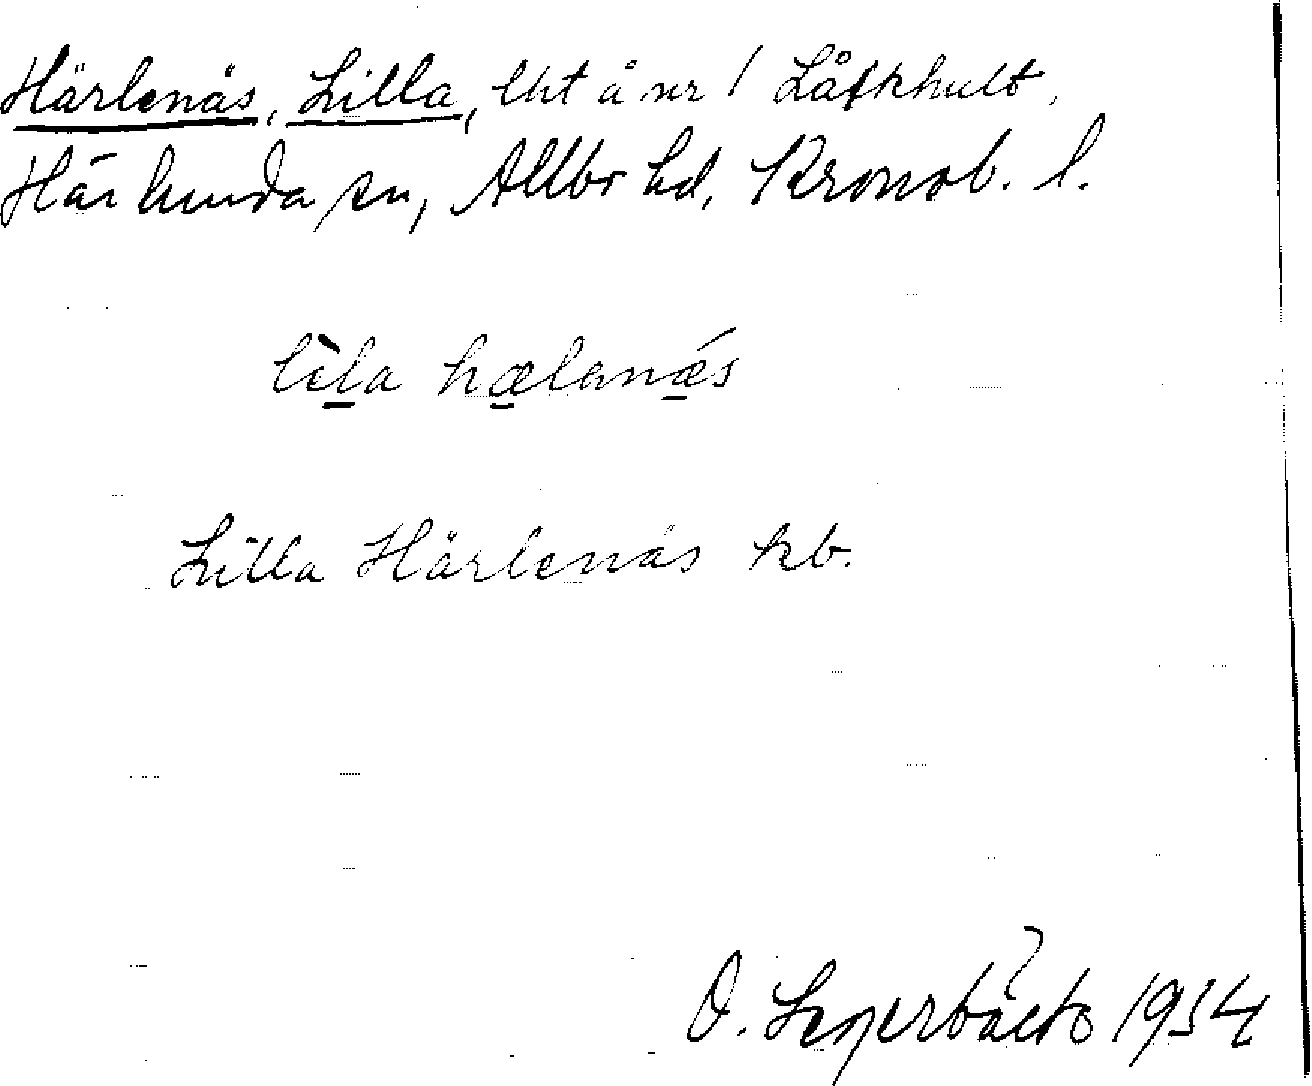 Härlenäs, Lilla, lht å nr 1 Låfkhult,
Härlunda sn, Allbo hd, Kronob. l.
lìla hælanǽs
Lilla Härlenäs kb.
O. 1934